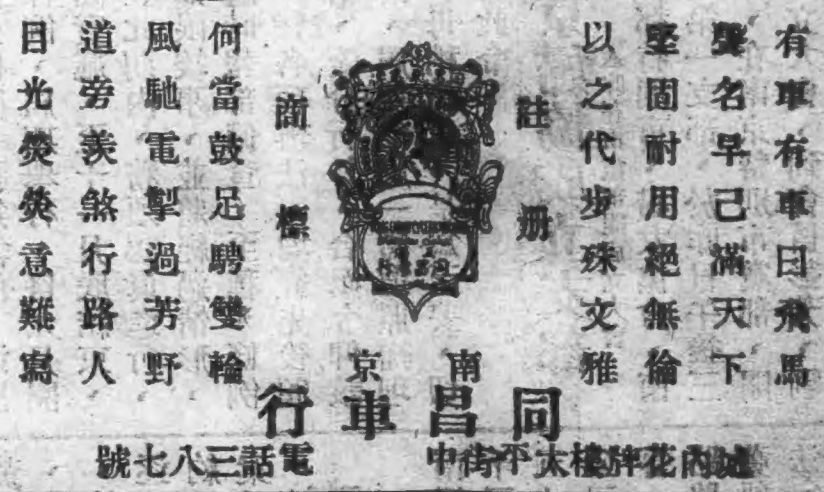 有車有車曰飛馬
聲名早己滿天下
堅固耐用絕無倫
以之代步殊文雅
註册
商標
何當鼓足騁雙輪
風馳電掣過芳野
道旁羨煞行路人
目光熒熒意難寫
南京
同昌車行
城內花牌樓太平街中
電話三八七號